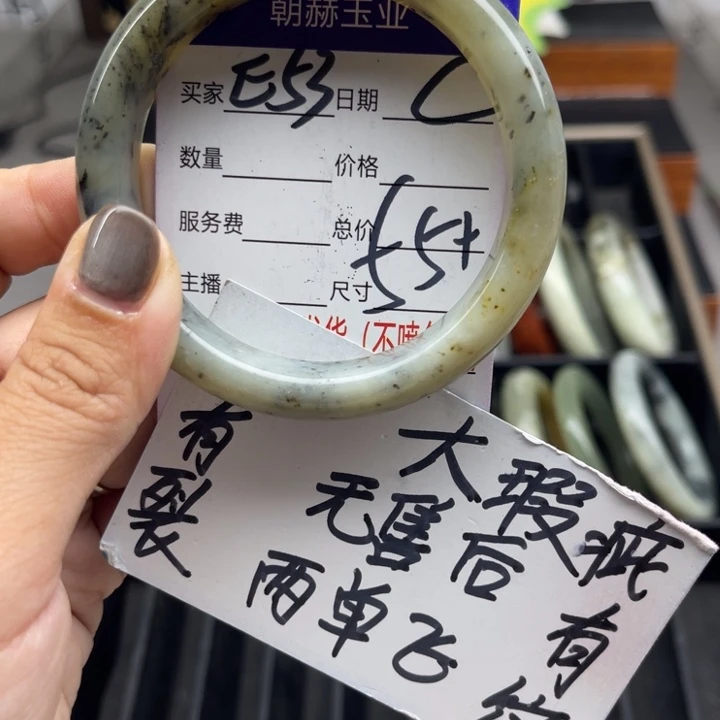 朝赫玉业
买家 E53 日期
数量 价格
服务费 总价
主播 尺寸 55+
有裂
大瑕疵
无售后 有
两单飞